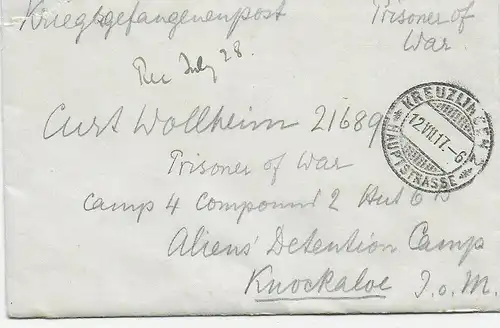 Kriegsgefangenenpost Prisoner of
War.
Rec July 28.
KREUZLINGEN 2
12.VII.17.-6
HAUPTSTRASSE
Curt Wollheim 21689
Prisoner of War
Camp 4 Compound 2 Hut 6
Aliens' Detention Camp
Knockaloe I.o.M.